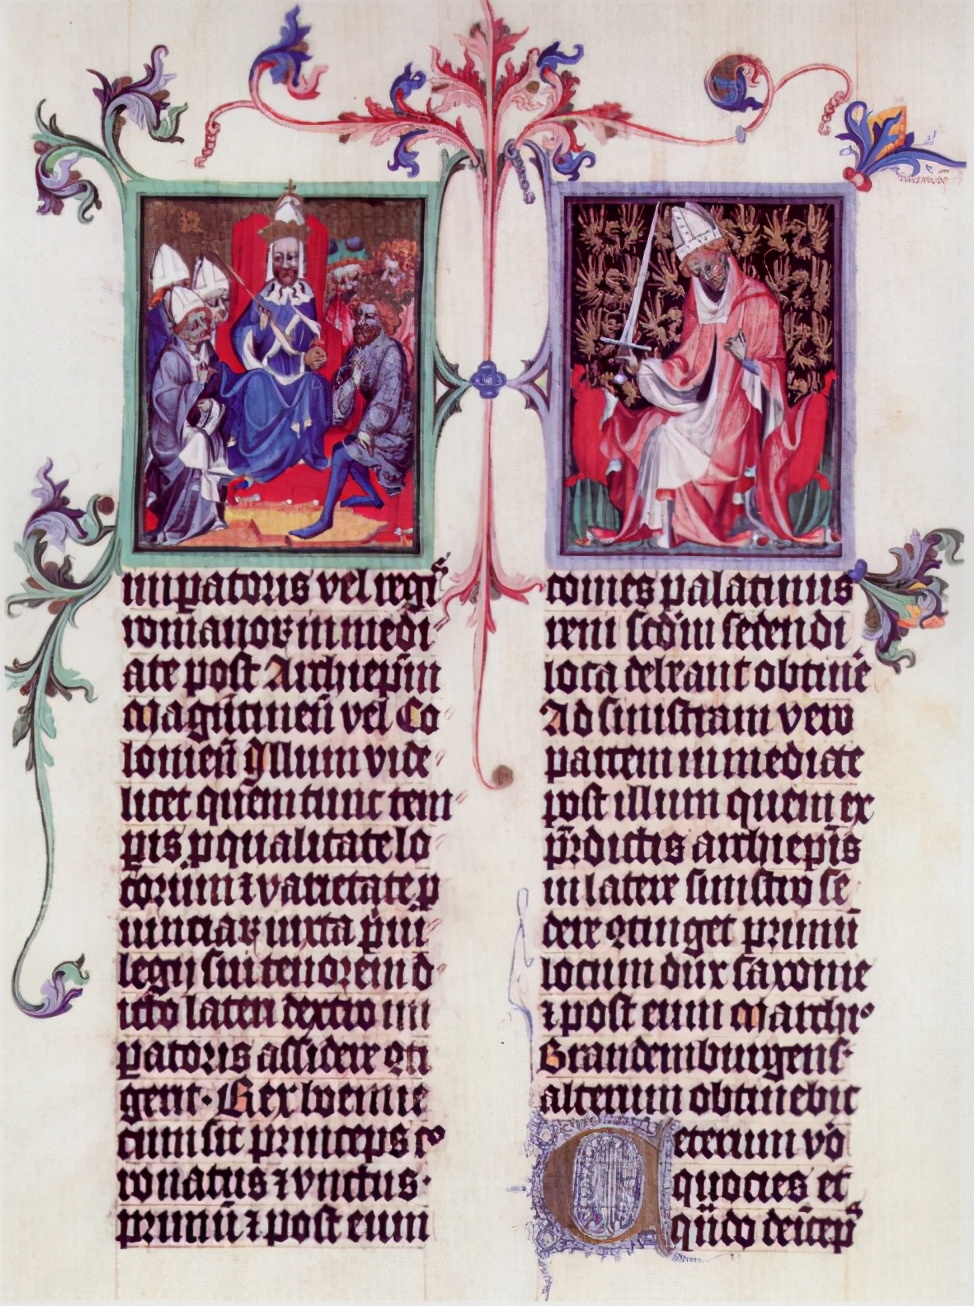 imperatoris vel regis
romanor in medi
ate post Archiepm
Magutineū vel Co
lonieñ Illum vide
licet quem tunc tem
pis pqualitate lo
corum ⁊ varietate p
uinciaꝝ iuxta pui
legij sui tenorem d
icto lateri dextro im
patoris assidere ɔti
gerit. Rex boemie
cum sit princeps co
ronatus ⁊ vnctus.
primū ⁊ post eum
comes palatinus
reni scdm sedendi
loca debeant obtinē
Ad sinistram vero
partem immediate
post illum quem ex
p̄dictis archiep̄is
in latere sinistro se
dere ɔtinget primū
locum dux saxonie
⁊ post eum Marchi
Brandemburgens
alterum obtinebit
Ceterum vo
quocies et
qndo deīcep